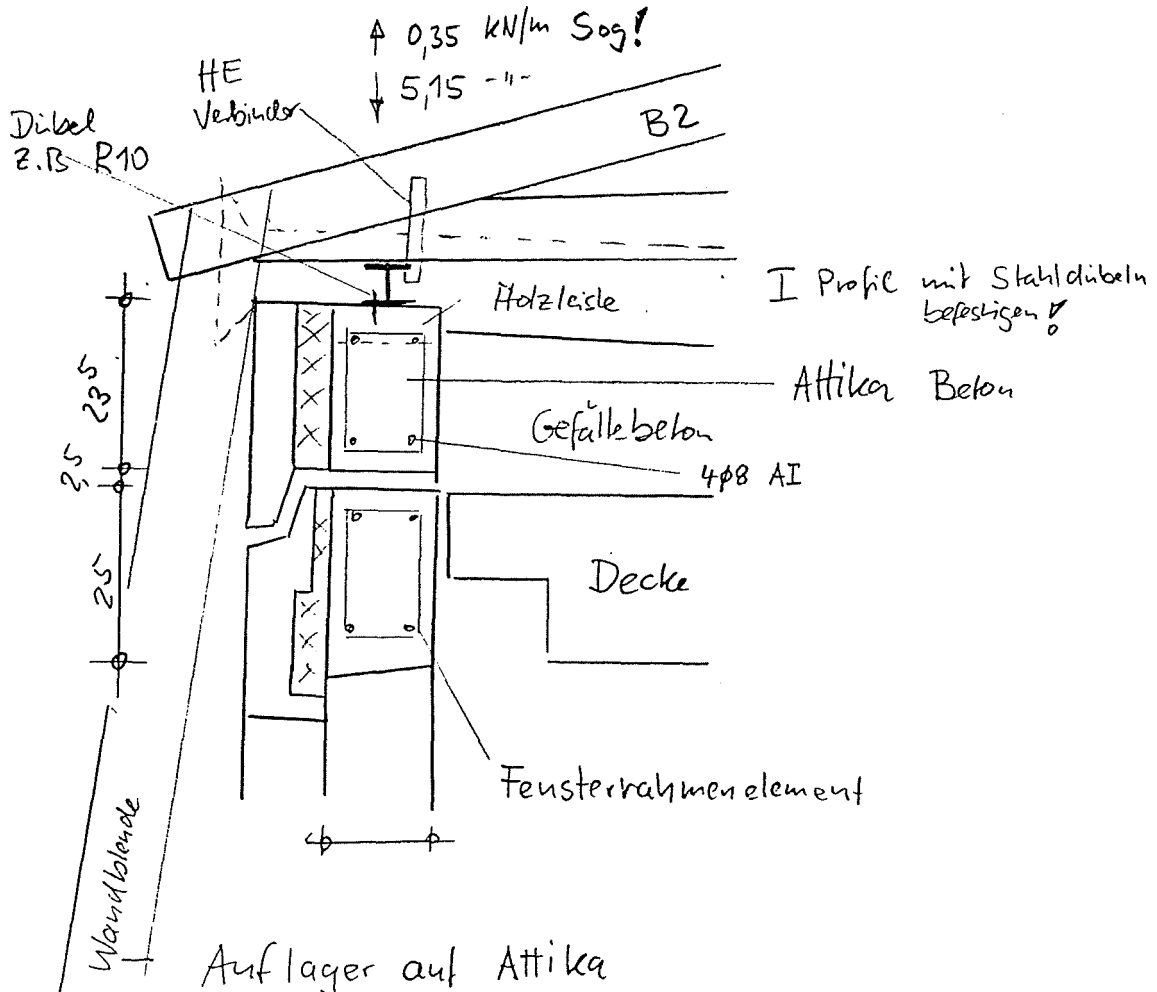 0,35 kN/m Sog!
5,15 -"-
HE
Verbinder
Dübel
z.B R10
B2
I Profil mit Stahldübeln
befestigen!
Holzleiste
23⁵
Attika Beton
Gefällebeton
2,5
4φ8 AI
25
Decke
Fensterrahmenelement
Wandblende
Auflager auf Attika